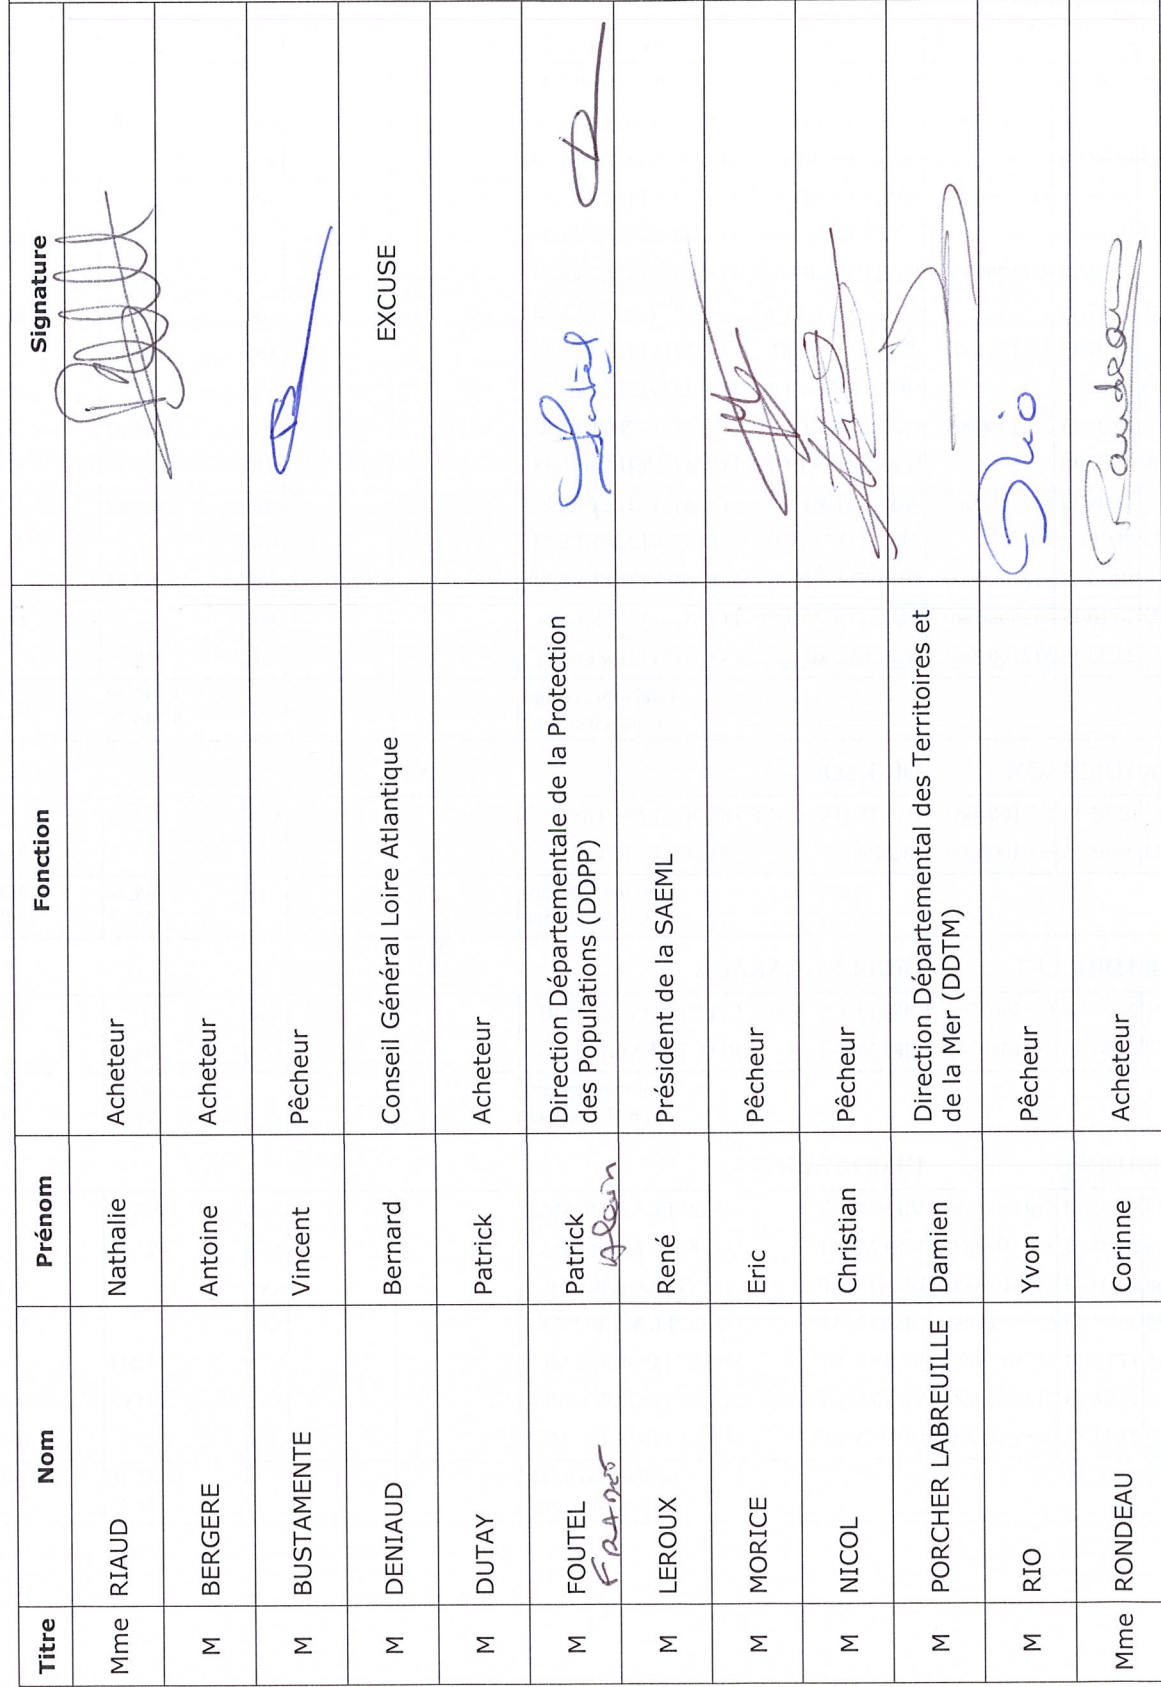 Titre Nom Prénom Fonction Signature
Mme RIAUD Nathalie Acheteur
M BERGERE Antoine Acheteur
M BUSTAMENTE Vincent Pêcheur
M DENIAUD Bernard Conseil Général Loire Atlantique EXCUSE
M DUTAY Patrick Acheteur
M FOUTEL Patrick Direction Départementale de la Protection
Alain des Populations (DDPP)
M LEROUX René Président de la SAEML
M MORICE Eric Pêcheur
M NICOL Christian Pêcheur
M PORCHER LABREUILLE Damien Direction Départemental des Territoires et
de la Mer (DDTM)
M RIO Yvon Pêcheur Rio
Mme RONDEAU Corinne Acheteur Rondeau